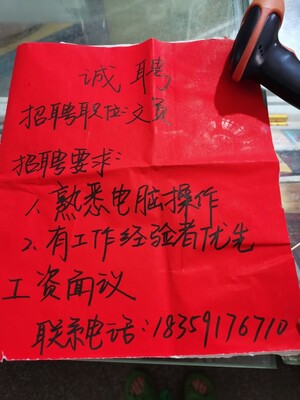 诚聘
招聘职位:文员
招聘要求:
1、熟悉电脑操作
2、有工作经验者优先
工资面议
联系电话:18359176710